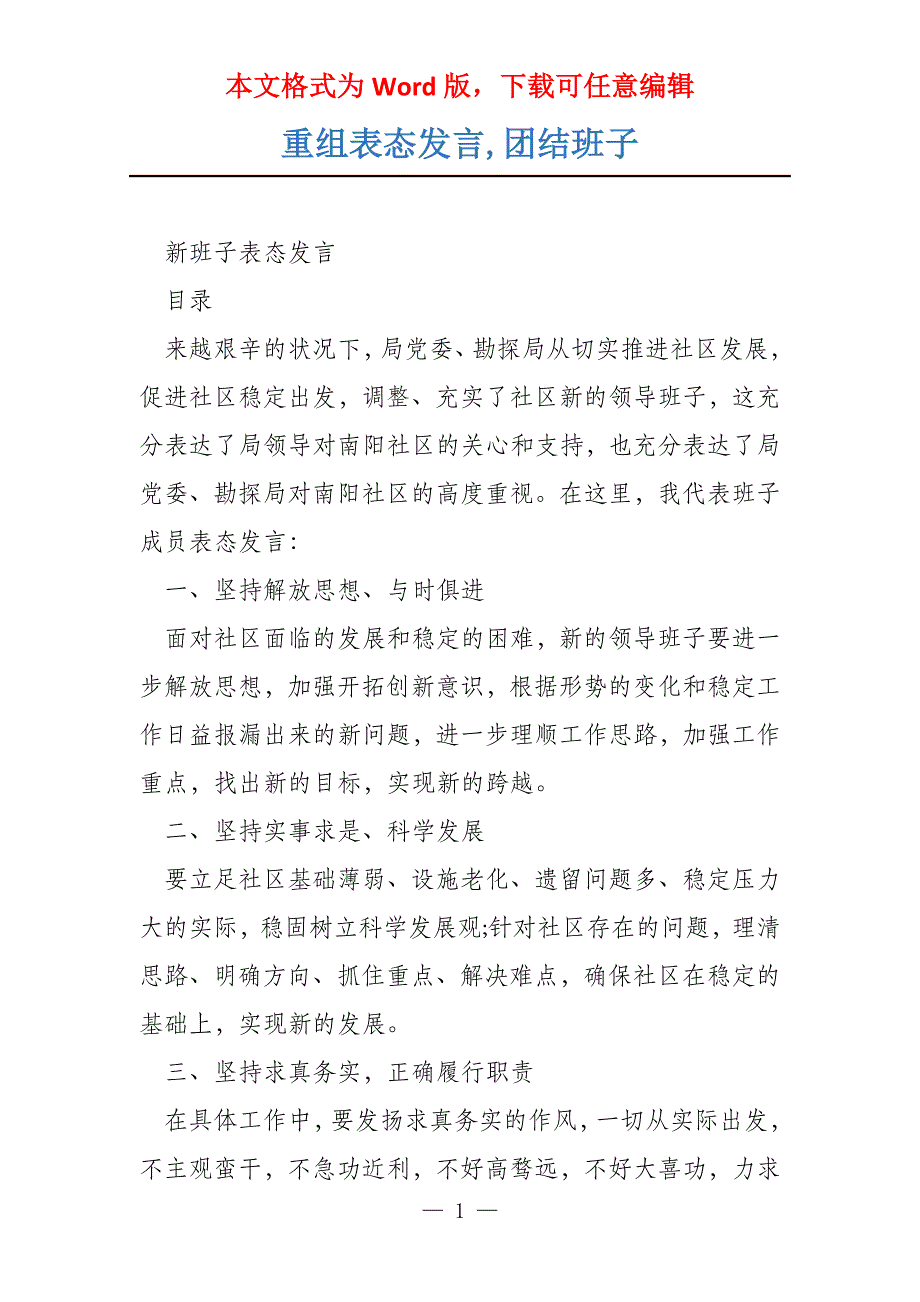 本文格式为 Word 版，下载可任意编辑
重组表态发言,团结班子
新班子表态发言
目录
来越艰辛的状况下，局党委、勘探局从切实推进社区发展，
促进社区稳定出发，调整、充实了社区新的领导班子，这充
分表达了局领导对南阳社区的关心和支持，也充分表达了局
党委、勘探局对南阳社区的高度重视。在这里，我代表班子
成员表态发言：
一、坚持解放思想、与时俱进
面对社区面临的发展和稳定的困难，新的领导班子要进一
步解放思想，加强开拓创新意识，根据形势的变化和稳定工
作日益报漏出来的新问题，进一步理顺工作思路，加强工作
重点，找出新的目标，实现新的跨越。
二、坚持实事求是、科学发展
要立足社区基础薄弱、设施老化、遗留问题多、稳定压力
大的实际，稳固树立科学发展观;针对社区存在的问题，理清
思路、明确方向、抓住重点、解决难点，确保社区在稳定的
基础上，实现新的发展。
三、坚持求真务实，正确履行职责
在具体工作中，要发扬求真务实的作风，一切从实际出发，
不主观蛮干，不急功近利，不好高骛远，不好大喜功，力求
— 1 —